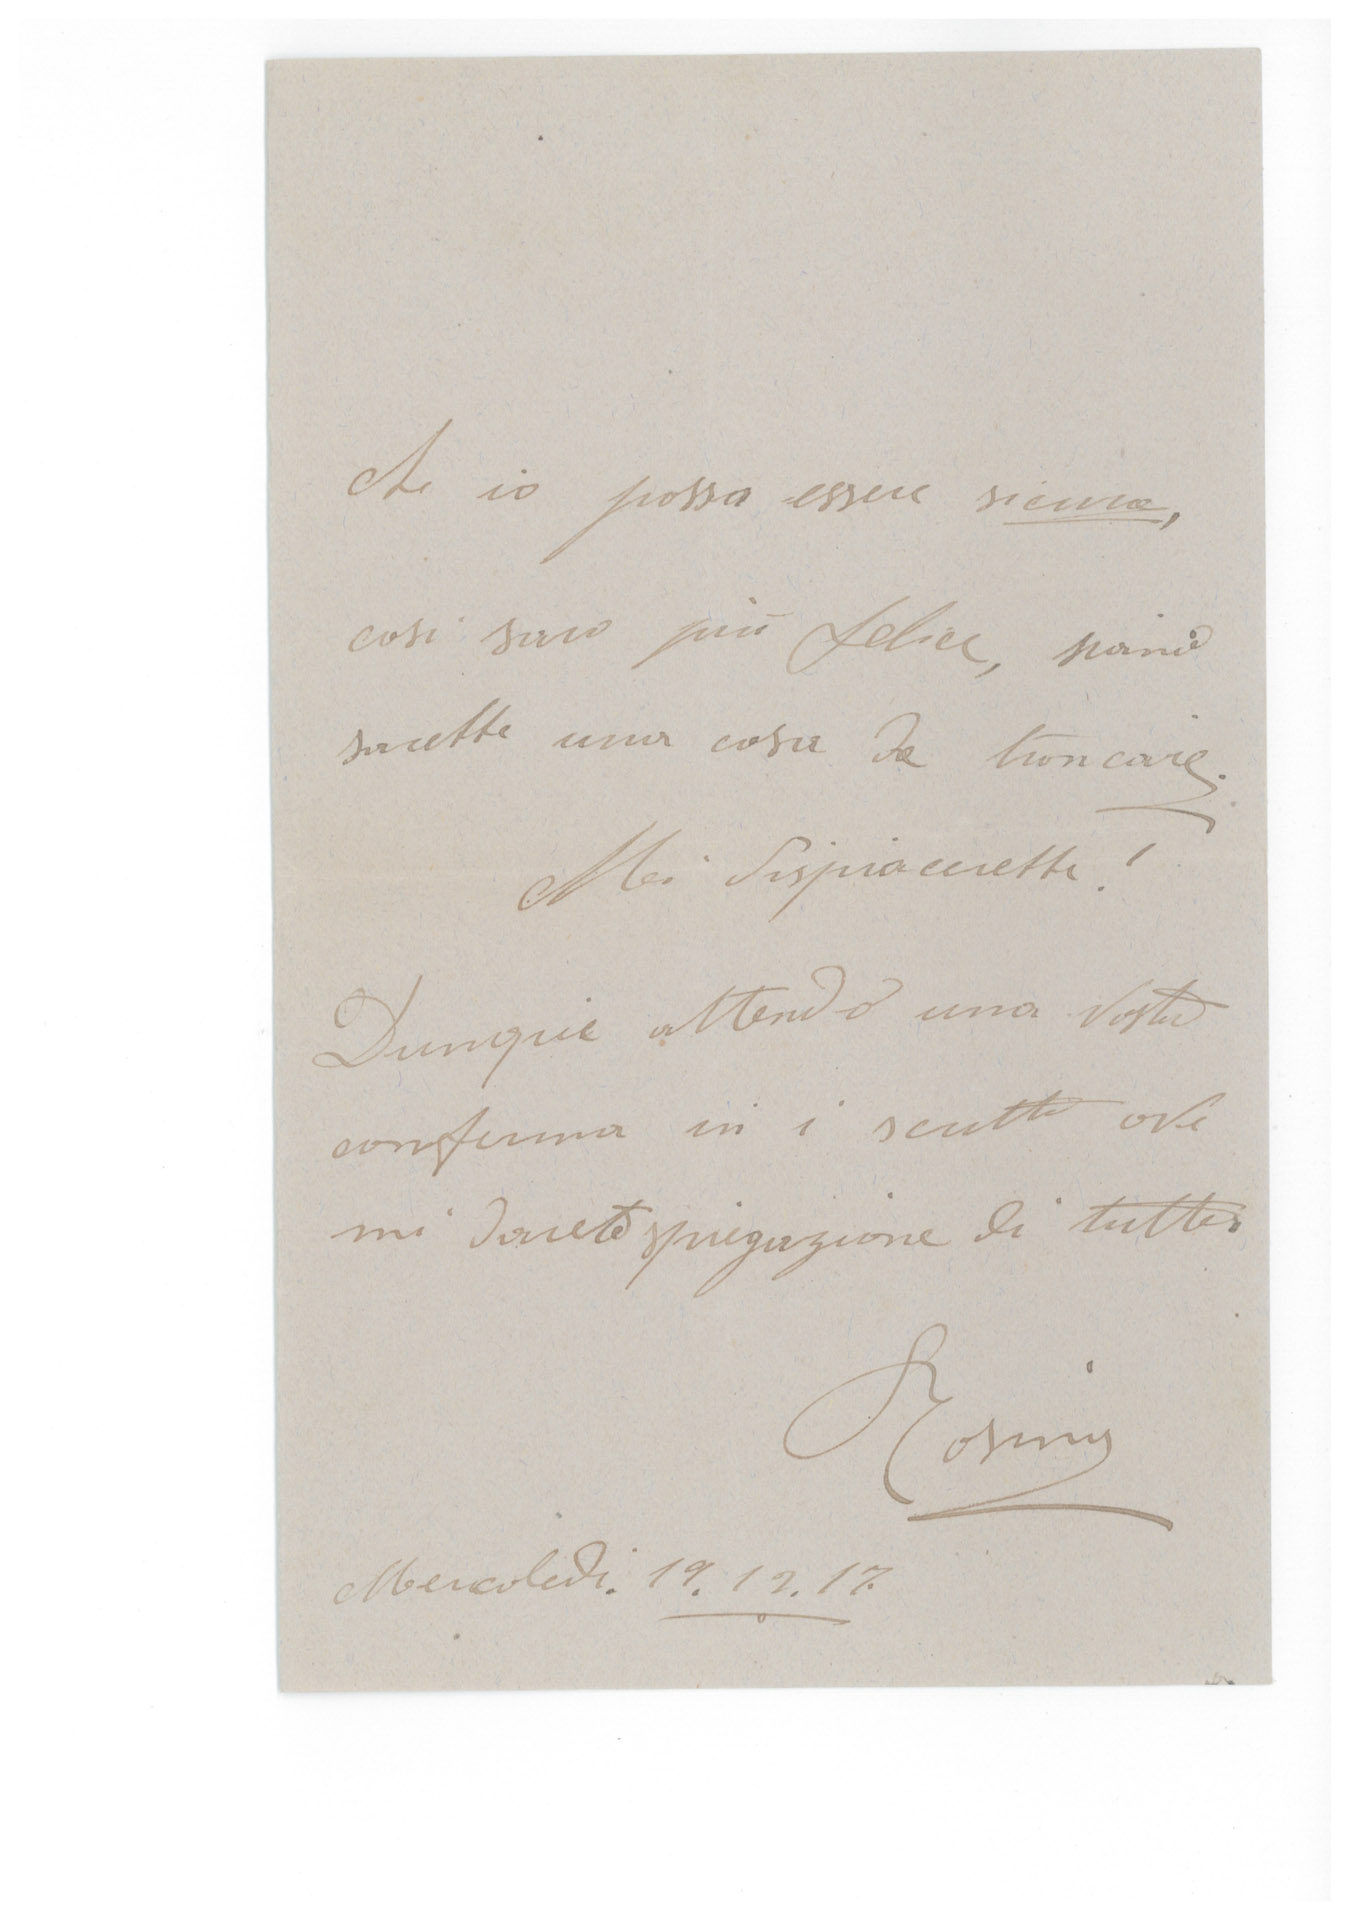 che io possa essere sicura,
così saro più felice,
sarette una cosa da troncare.
Mi dispiacerette!
Dunque attendo una vostra
conferma in i scritto ove
mi darete spiegazione di tutto
Rosina
Mercoledi. 19.12.17.